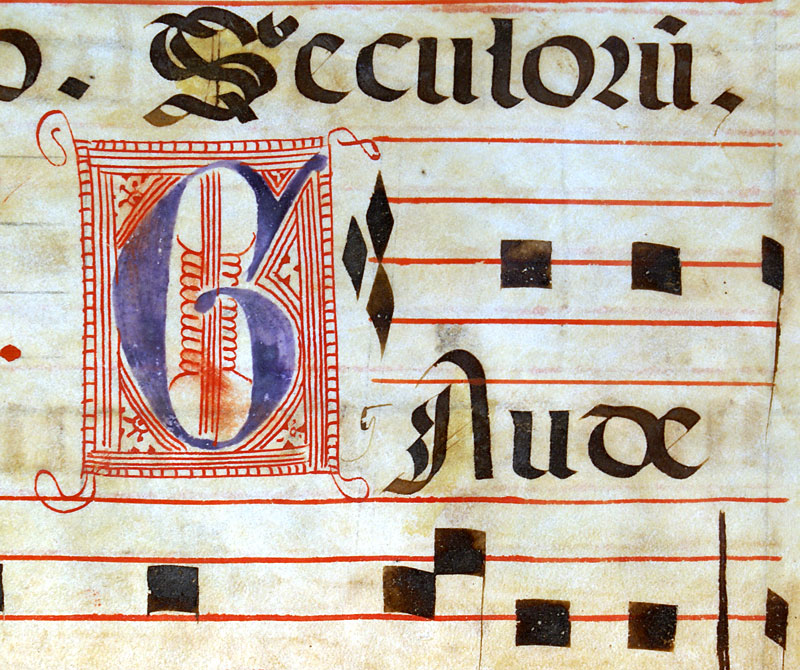 o. Seculorū.
GAude